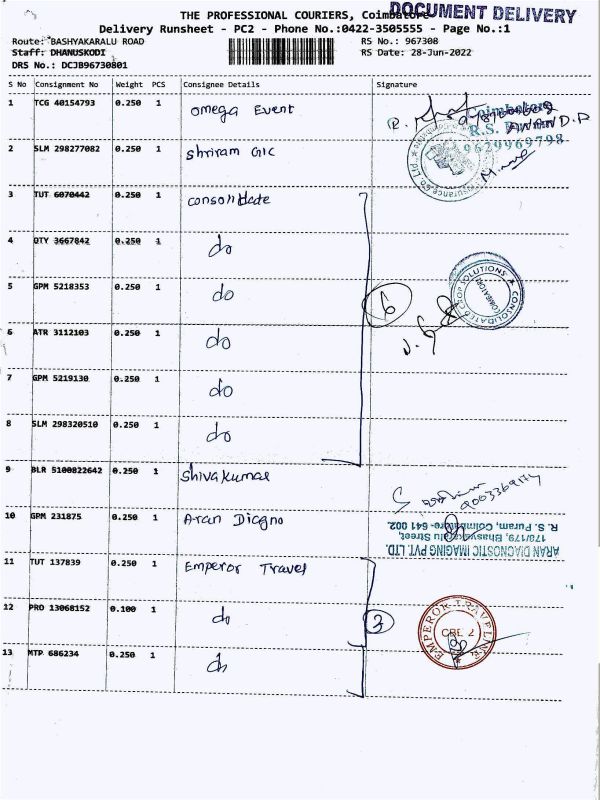 DOCUMENT DELIVERY
THE PROFESSIONAL COURIERS, Coimbatore
Delivery Runsheet - PC2 - Phone No.:0422-3505555 - Page No.:1
Route: BASHYAKARALU ROAD
RS No.: 967308
Staff: DHANUSKODI
RS Date: 28-Jun-2022
DRS No.: DCJB96730801
S No Consignment No Weight PCS Consignee Details Signature
1 TCG 40154793 0.250 1 Omega Event
Coimbatore
R.S. Puram
9629969798
2 SLM 298277082 0.250 1 Shriram GIC
3 TUT 6070442 0.250 1 consolidate
4 QTY 3667842 0.250 1 do
5 GPM 5218353 0.250 1 do
6
CONSOLIDATED CROP SOLUTIONS
COIMBATORE
6 ATR 3112103 0.250 1 do
7 GPM 5219130 0.250 1 do
8 SLM 298320510 0.250 1 do
9 BLR 5100822642 0.250 1 Shivakumar
10 GPM 231875 0.250 1 Aran Diagno
ARAN DIAGNOSTIC IMAGING PVT. LTD.
178/179, Bhasyakaralu Street,
R. S. Puram, Coimbatore- 641 002.
11 TUT 137839 0.250 1 Emperor Travel
12 PRO 13068152 0.100 1 do
3
EMPEROR TRAVELINE
CBE 2
13 MTP 686234 0.250 1 do